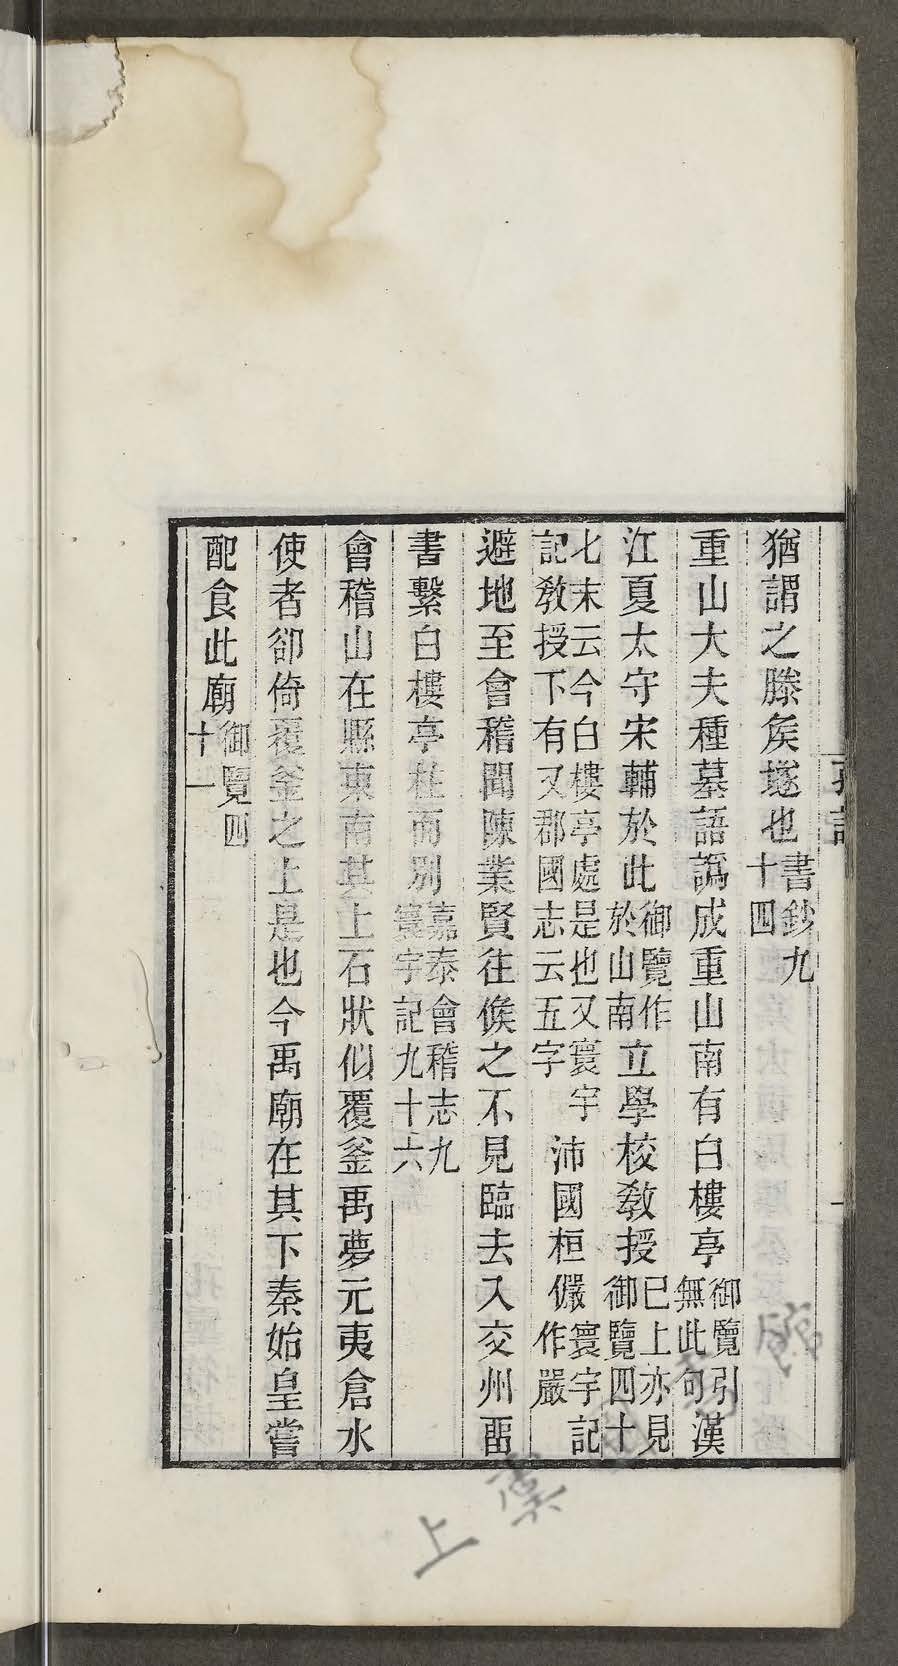 猶謂之滕矦垐也書鈔九十四
重山大夫種墓語譌成重山南有白樓亭御覽引無此句漢
江夏太守宋輔於此御覽作於山南立學校敎授已上亦見御覽四十
七末云今白樓亭處是也又寰宇記敎授下有又郡國志云五字沛國桓儼寰宇記作嚴
避地至會稽聞陳業賢往候之不見臨去入交州畱
書繫白樓亭柱而別嘉泰會稽志九寰宇記九十六
會稽山在縣東南其上石狀似覆釜禹夢元夷倉水
使者卻倚覆釜之上是也今禹廟在其下秦始皇嘗
配食此廟御覽四十一
上虞